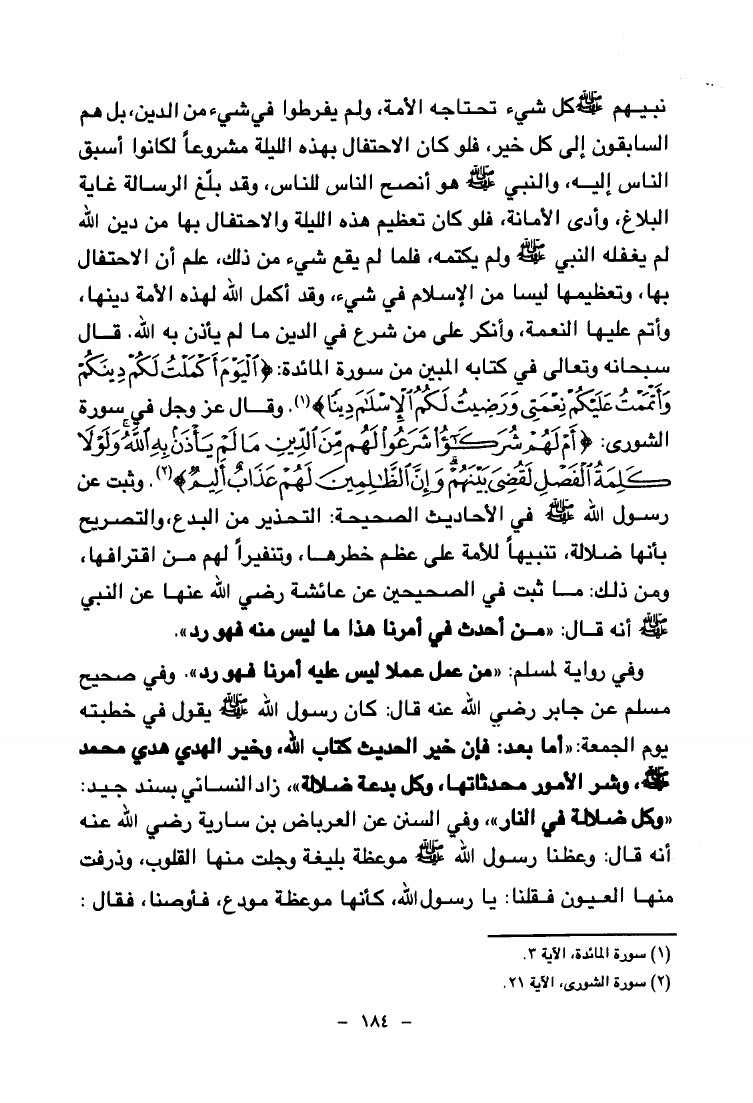 نبيهم ﷺ كل شيء تحتاجه الأمة، ولم يفرطوا في شيء من الدين، بل هم
السابقون إلى كل خير، فلو كان الاحتفال بهذه الليلة مشروعاً لكانوا أسبق
الناس إليه، والنبي ﷺ هو أنصح الناس للناس، وقد بلّغ الرسالة غاية
البلاغ، وأدى الأمانة، فلو كان تعظيم هذه الليلة والاحتفال بها من دين الله
لم يغفله النبي ﷺ ولم يكتمه، فلما لم يقع شيء من ذلك، علم أن الاحتفال
بها، وتعظيمها ليسا من الإسلام في شيء، وقد أكمل الله لهذه الأمة دينها،
وأتم عليها النعمة، وأنكر على من شرع في الدين ما لم يأذن به الله. قال
سبحانه وتعالى في كتابه المبين من سورة المائدة: ﴿ٱلۡيَوۡمَ أَكۡمَلۡتُ لَكُمۡ دِينَكُمۡ
وَأَتۡمَمۡتُ عَلَيۡكُمۡ نِعۡمَتِي وَرَضِيتُ لَكُمُ ٱلۡإِسۡلَٰمَ دِينٗا﴾(١). وقال عز وجل في سورة
الشورى: ﴿أَمۡ لَهُمۡ شُرَكَٰٓؤُاْ شَرَعُواْ لَهُم مِّنَ ٱلدِّينِ مَا لَمۡ يَأۡذَنۢ بِهِ ٱللَّهُۚ وَلَوۡلَا
كَلِمَةُ ٱلۡفَصۡلِ لَقُضِيَ بَيۡنَهُمۡۗ وَإِنَّ ٱلظَّٰلِمِينَ لَهُمۡ عَذَابٌ أَلِيمٞ﴾(٢). وثبت عن
رسول الله ﷺ في الأحاديث الصحيحة: التحذير من البدع، والتصريح
بأنها ضلالة، تنبيهاً للأمة على عظم خطرها، وتنفيراً لهم من اقترافها،
ومن ذلك: ما ثبت في الصحيحين عن عائشة رضي الله عنها عن النبي
ﷺ أنه قال: «من أحدث في أمرنا هذا ما ليس منه فهو رد».
وفي رواية لمسلم: «من عمل عملا ليس عليه أمرنا فهو رد». وفي صحيح
مسلم عن جابر رضي الله عنه قال: كان رسول الله ﷺ يقول في خطبته
يوم الجمعة: «أما بعد: فإن خير الحديث كتاب الله، وخير الهدي هدي محمد
ﷺ، وشر الأمور محدثاتها، وكل بدعة ضلالة»، زاد النسائي بسند جيد:
«وكل ضلالة في النار»، وفي السنن عن العرباض بن سارية رضي الله عنه
أنه قال: وعظنا رسول الله ﷺ موعظة بليغة وجلت منها القلوب، وذرفت
منها العيون فقلنا: يا رسول الله، كأنها موعظة مودع، فأوصنا، فقال :
(١) سورة المائدة، الآية ٣.
(٢) سورة الشورى، الآية ٢١.
- ١٨٤ -